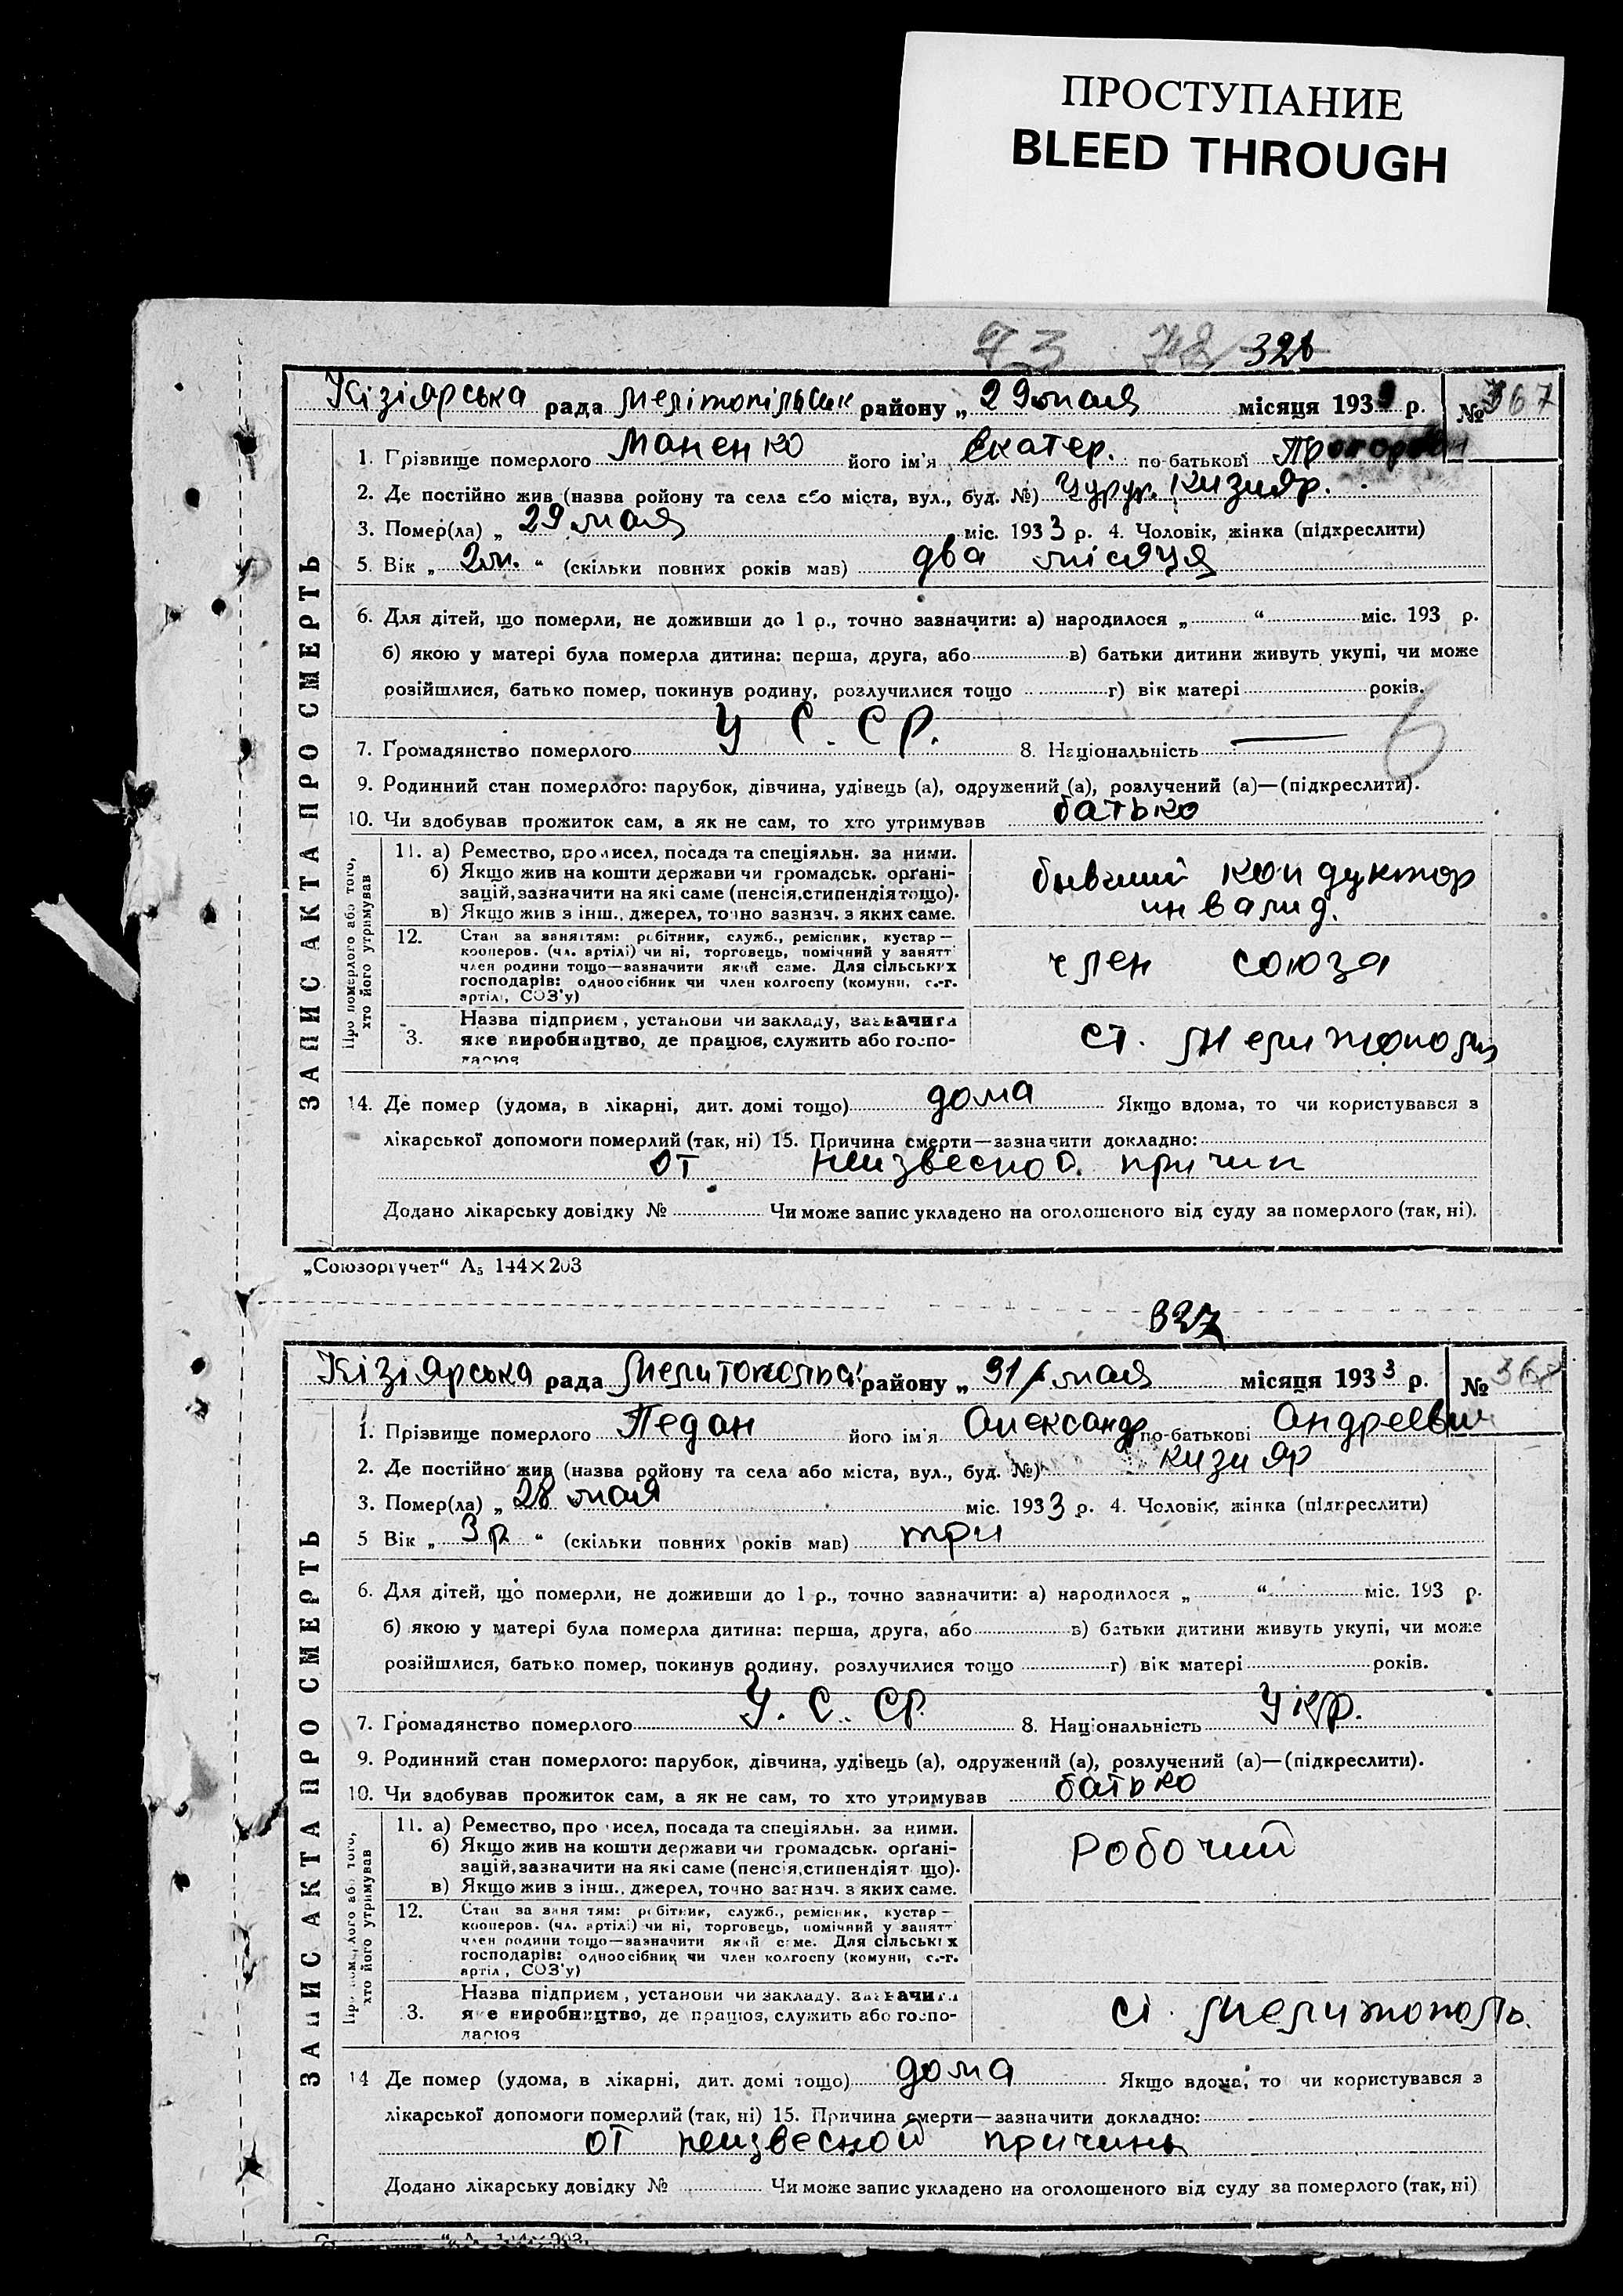 ПРОСТУПАНИЕ
BLEED THROUGH
73 72 328
Кізіярська рада Мелітопільськ району „ 29 мая місяця 1933 р. № 367
ЗАПИС АКТА ПРО СМЕРТЬ
1. Грізвище померлого Маненко його ім'я Екатер. по батькові
2. Де постійно жив (назва ройону та села або міста, вул., буд. №) Кизияр.
3. Помер(ла) „ 29 мая міс. 1933 р. 4. Чоловік, жінка (підкреслити)
5. Вік „ 2 м. “ (скільки повних років мав) два місяця
6. Для дітей, що померли, не доживши до 1 р., точно зазначити: а) народилося „ “ міс. 193 р.
б) якою у матері була померла дитина: перша, друга, або в) батьки дитини живуть укупі, чи може
розійшлися, батько помер, покинув родину, розлучилися тощо г) вік матері років.
7. Громадянство померлого У С. С Р. 8. Національність —
6
9. Родинний стан померлого: парубок, дівчина, удівець (а), одружений (а), розлучений (а)—(підкреслити).
10. Чи здобував прожиток сам, а як не сам, то хто утримував батько
Про померлого або того, хто його утримував
11. а) Ремество, промисел, посада та спеціяльн. за ними.
б) Якщо жив на кошти держави чи громадськ. орґані-
зацій, зазначити на які саме (пенсія, стипендія тощо).
в) Якщо жив з інш., джерел, точно зазнач. з яких саме.
бывший кондуктор
инвалид.
12. Стан за заняттям: робітник, служб., ремісник, кустар—
кооперов. (чл. артілі) чи ні, торговець, помічний у занятт
член родини тощо—зазначити який саме. Для сільських
господарів: одноосібник чи член колгоспу (комуни, с.-г.
артілі, СОЗ'у)
член союза
3. Назва підприєм, установи чи закладу, зазначити
яке виробництво, де працює, служить або госпо-
дарює
ст. Мелитополь
14. Де помер (удома, в лікарні, дит. домі тощо) дома Якщо вдома, то чи користувався з
лікарської допомоги померлий (так, ні) 15. Причина смерти—зазначити докладно:
от неизвесной причин
Додано лікарську довідку № Чи може запис укладено на оголошеного від суду за померлого (так, ні).
„Союзоргучет“ А₅ 144×203
327
Кізіярська рада Мелитопольсь району „ 31/ мая місяця 1933 р. № 368
ЗАПИС АКТА ПРО СМЕРТЬ
1. Прізвище померлого Педан його ім'я Олександр по-батькові Андреевич
2. Де постійно жив (назва ройону та села або міста, вул., буд. №) кизияр
3. Помер(ла) „ 28 мая міс. 1933 р. 4. Чоловік, жінка (підкреслити)
5 Вік „ 3 р. “ (скільки повних років мав) три
6. Для дітей, що померли, не доживши до 1 р., точно зазначити: а) народилося „ “ міс. 193 р.
б) якою у матері була померла дитина: перша, друга, або в) батьки дитини живуть укупі, чи може
розійшлися, батько помер, покинув родину, розлучилися тощо г) вік матері років.
7. Громадянство померлого У. С. СР. 8. Національність Укр.
9. Родинний стан померлого: парубок, дівчина, удівець (а), одружений (а), розлучений (а)—(підкреслити).
10. Чи здобував прожиток сам, а як не сам, то хто утримував батько
Про померлого або того, хто його утримував
11. а) Ремество, промисел, посада та спеціяльн. за ними.
б) Якщо жив на кошти держави чи громадськ. орґані-
зацій, зазначити на які саме (пенсія, стипендія тощо).
в) Якщо жив з інш., джерел, точно зазнач. з яких саме.
Робочий
12. Стан за заняттям: робітник, служб., ремісник, кустар—
кооперов. (чл. артілі) чи ні, торговець, помічний у занятт
член родини тощо—зазначити який саме. Для сільських
господарів: одноосібник чи член колгоспу (комуни, с.-г.
артіл, СОЗ'у)
3. Назва підприєм, установи чи закладу, зазначити
яке виробництво, де працює, служить або госпо-
дарює
ст. Мелитополь.
14 Де помер (удома, в лікарні, дит. домі тощо) дома Якщо вдома, то чи користувався з
лікарської допомоги померлий (так, ні) 15. Причина смерти—зазначити докладно:
от неизвесной причины
Додано лікарську довідку № Чи може запис укладено на оголошеного від суду за померлого (так, ні)